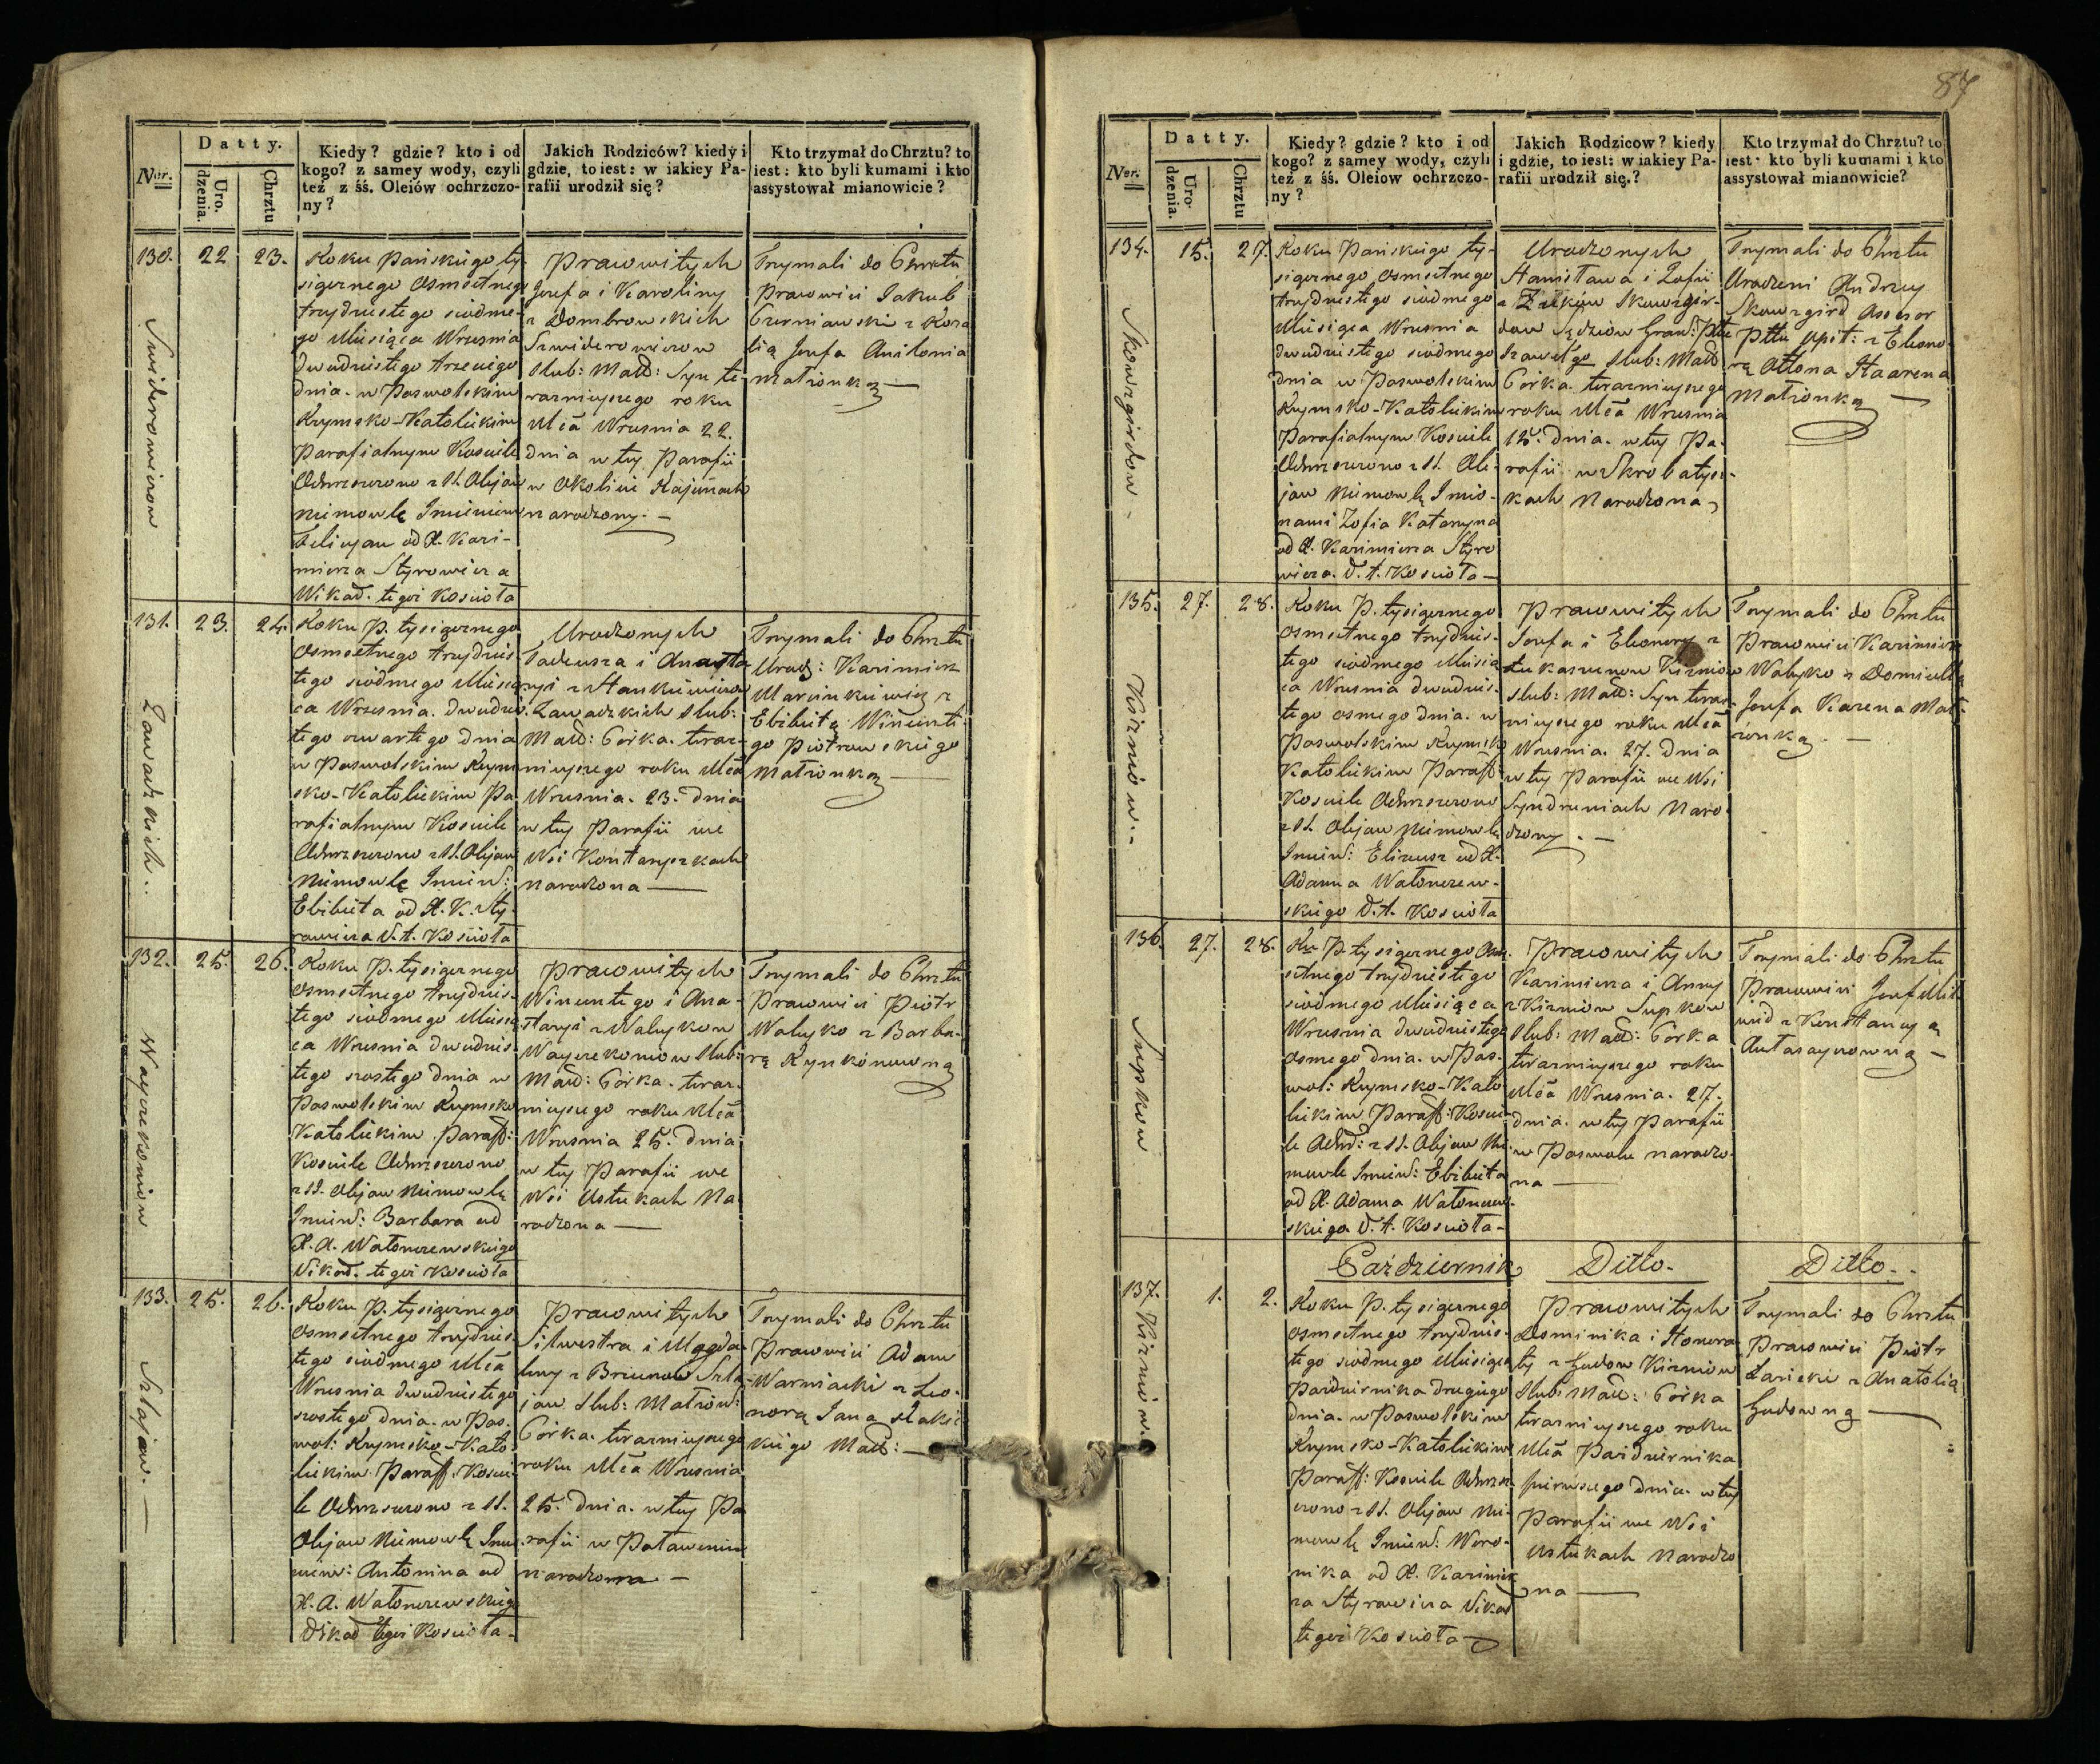 87
Datty.
Ner.
Uro.
dzenia.
Chrztu
Kiedy? gdzie? kto i od
kogo? z samey wody, czyli
też z śś. Oleiów ochrzczo-
ny?
Jakich Rodziców? kiedy i
gdzie, to iest: w iakiey Pa-
rafii urodził się?
Kto trzymał do Chrztu? to
iest: kto byli kumami i kto
assystował mianowicie?
130.
22
23.
Szwiderowiczow
Roku Pańskiego ty-
siącznego osmsetnego
trzydziestego siódme-
go Miesiąca Wrześnią
dwudziestego trzeciego
dnia. w Poswolskim
Rzymsko-Katolickim
Parafialnym Kosciele
Ochrzczono z SS. Olejow
niemowlę Imieniem
Felicyan od X. Kazi-
mierza Styrowicza
Wikar. tegoż Koscioła
Prawowitych
Jozefa i Karoliny
z Dombrowskich
Szwiderowiczow
slub: Małż: Syn te-
razniejszego roku
Mca Wrzesnia 22.
dnia w tej Parafii
w Okolicie Kajanach
narodzony. —
Trzymali do Chrztu
Prawowici Jakub
Czerniawski z Roza-
lią Jozefa Anilonia
małżonką —
131.
23.
24.
Zawadzkich..
Roku P. tysiącznego
osmsetnego trzydzies-
tego siódmego Miesią-
ca Wrzesnia. dwudzies-
tego czwartego dnia
w Poswolskim Rzym-
sko-Katolickim Pa-
rafialnym Kosciele
Ochrzczono z SS. Olejow
niemowlę Imien:
Elżbieta od X. K. Sty-
rowicza W. t. Kościoła
Urodzonych
Tadeusza i Anasta-
zyi z Stankiewiczow
Zawadzkich slub:
Małż: Córka. teraz-
niejszego roku Mca
Wrzesnia. 23. dnia
w tej Parafii we
Wsi Konstanczkach
narodzona —
Trzymali do Chrztu
Urodz: Kazimierz
Marcinkiewicz z
Elżbietą Wincente-
go Piotrowskiego
małżonką —
132.
25.
26.
Wayczekoniow
Roku P. tysiącznego
osmsetnego trzydzies-
tego siódmego Miesią-
ca Wrzesnia dwudzies-
tego szostego dnia w
Poswolskim Rzymsko
Katolickim Paraff:
Kosciele Ochrzczono
z SS. Olejow niemowlę
Imien: Barbara od
X. A. Wałonczewskiego
Wikar. tegoż Kosciola
Prawowitych
Wincentego i Ana-
stazyi z Walejkow
Wayczekoniow slub:
Małż: Córka. teraz-
niejszego roku Mca
Wrzesnia 25. dnia
w tej Parafii we
Wsi Ustukach na-
rodzona —
Trzymali do Chrztu
Prawowici Piotr
Walejko z Barba-
rą Rynkonowną
133.
25.
26.
Szlajow. —
Roku P. tysiącznego
osmsetnego trzydzies-
tego siódmego Mca
Wrzesnia dwudziestego
szostego dnia. w Pos-
wol: Rzymsko-Kato-
lickim Paraff. Koscie-
le Ochrzczono z SS.
Olejow Niemowlę Imie-
niem: Antonina od
X. A. Wałonczewskiego
Wikar tegoż Kościoła.
Prawowitych
Silwestra i Magda-
leny z Szla-
jow slub: Małżon:
Córka. terazniejszego
roku Mca Wrzesnia
25. dnia. w tej Pa-
rafii w
narodzona —
Trzymali do Chrztu
Prawowici Adam
Warniacki z Leo-
norą Jana
Małż: —
Datty.
Ner.
Uro-
dzenia.
Chrztu
Kiedy? gdzie? kto i od
kogo? z samey wody, czyli
też z śś. Oleiow ochrzczo-
ny?
Jakich Rodzicow? kiedy
i gdzie, to iest: w iakiey Pa-
rafii urodził się.?
Kto trzymał do Chrztu? to
iest: kto byli kumami i kto
assystował mianowicie?
134.
15.
27.
Skowzgirdow.
Roku Pańskiego ty-
siącznego osmsetnego
trzydziestego siódmego
Miesiąca Wrzesnia
dwudziestego siódmego
dnia w Poswolskim
Rzymsko-Katolickim
Parafialnym Kosciele
Ochrzczono z SS. Ole-
jow niemowlę Imio-
nami Zofia Katarzyna
od X. Kazimierza Styro-
wicza. W. t. Kosciola —
Urodzonych
Stanisława i Zofii
z Skowzgir-
dow Sędziow Gran: Pttu
Szawel'go slub: Małż
Córka. terazniejszego
roku Mca Wrzesnia
15. dnia. w tej Pa-
rafii w Skrobatysz-
kach narodzona
Trzymali do Chrztu
Urodzeni Andrzej
Skowzgird Assesor
Pttu Upit: z Eleono-
rą Ottona Haarena
małżonką —
135.
27.
28.
Kizniow..
Roku P. tysiącznego
osmsetnego trzydzies-
tego siódmego Miesią-
ca Wrzesnia dwudzies-
tego osmego dnia. w
Poswolskim Rzymsko
Katolickim Paraff:
Kosciele Ochrzczono
z SS. Olejow niemowlę
Imien: Elizeusz od X.
Adama Wałonczew-
skiego W. t. Kosciola
Prawowitych
Jozefa i Eleonory z
Łukaszunow Kizniow
slub: Małż: Syn teraz-
niejszego roku Mca
Wrzesnia. 27. dnia
w tej Parafii we Wsi
Syndruniach naro-
dzony. —
Trzymali do Chrztu
Prawowici Kazimierz
Walejko z Domicellą
Jozefa Karena Mał-
żonką. —
136.
27.
28.
Supkow
Ru P. tysiącznego osm-
setnego trzydziestego
siódmego Miesiąca
Wrzesnia dwudziestego
osmego dnia. w Pos-
wol: Rzymsko-Kato-
lickim Paraff: Koscie-
le Ochrz: z SS. Olejow nie-
mowle Imien: Elżbieta
od X. Adama Wałonczew-
skiego W. t. Kosciola —
Prawowitych
Kazimierza i Anny
z Kizniow Supkow
Slub: Małż: Córka
terazniejszego roku
Mca Wrzesnia. 27.
dnia. w tej Parafii
w Poswolu narodzo-
na —
Trzymali do Chrztu
Prawowici Jozef
z Konstancyą
137.
1.
2.
Kizniow.
Październik
Ditto.
Ditto..
Roku P. tysiącznego
osmsetnego trzydzies-
tego siódmego Miesiąca
Pazdziernika drugiego
dnia. w Poswolskim
Rzymsko-Katolickim
Paraff: Kosciele Ochrz-
czono z SS. Olejow nie-
mowlę Imien: Wero-
nika od X. Kazimier-
za Styrowicza Wikar
tegoż Kosciola —
Prawowitych
Dominika i Honora-
ty z Gudow Kizniow
Slub: Małż: Córka
terazniejszego roku
Mca Pazdziernika
pierwszego dnia. w tej
Parafii we Wsi
Ustukach narodzo-
na —
Trzymali do Chrztu
Prawowici Piotr
Łasicki z Anatolią
Gudowną —